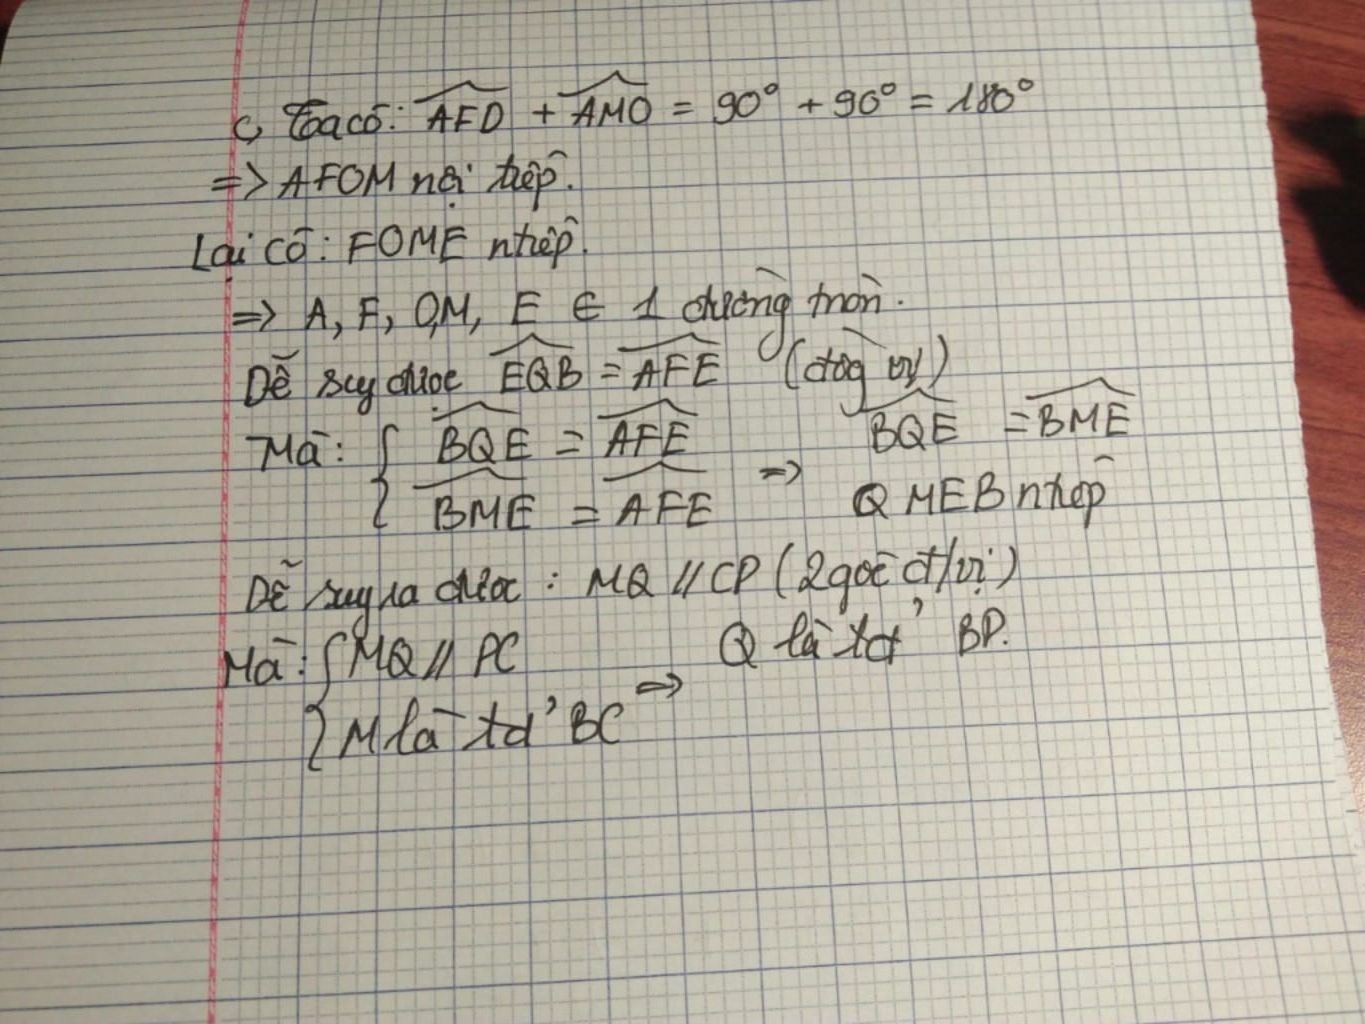 c, Ta có: AFO + AMO = 90° + 90° = 180°
=> AFOM nội tiếp.
Lại có: FOME ntiếp.
=> A, F, O, M, E ∈ 1 đường tròn.
Dễ suy được EQB = AFE (đồg vị)
Mà: { BQE = AFE
BME = AFE => BQE = BME
QMEB ntiếp
Dễ suy ra được: MQ // CP (2 góc đ/vị)
Mà: { MQ // PC
M là tđ' BC => Q là tđ' BP.